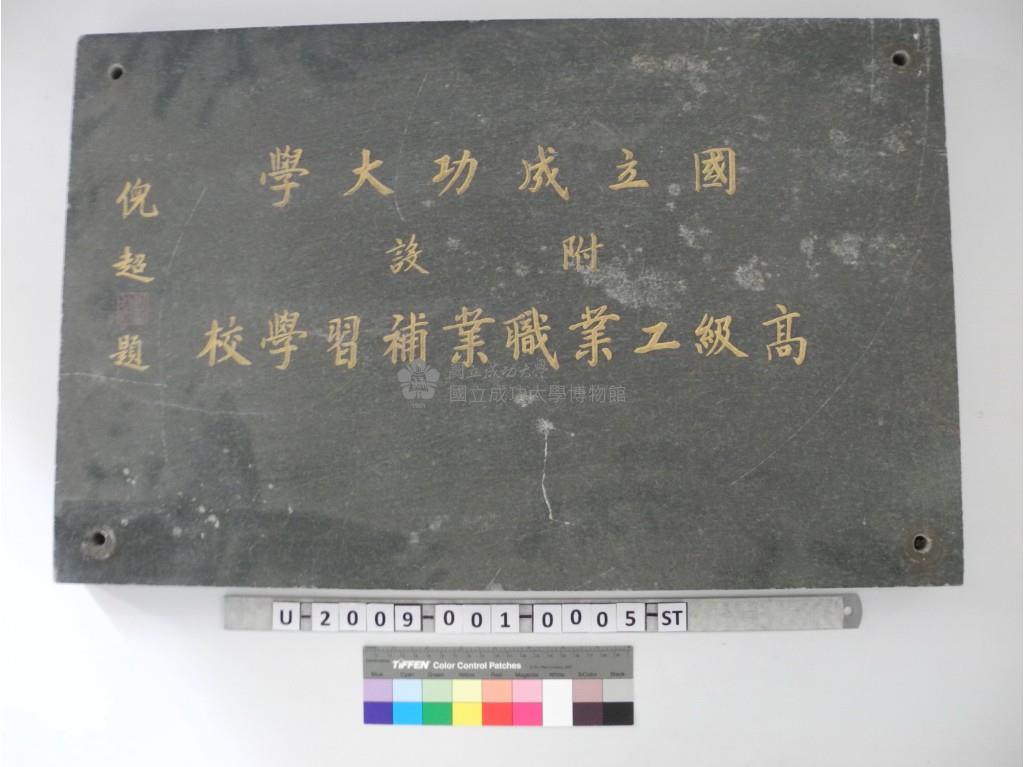 國立成功大學
附設
高級工業職業補習學校
倪超題
國立成功大學
國立成功大學博物館
1931
U-2009-001-0005-ST
TIFFEN Color Control Patches
Blue Cyan Green Yellow Red Magenta White 3/Color Black